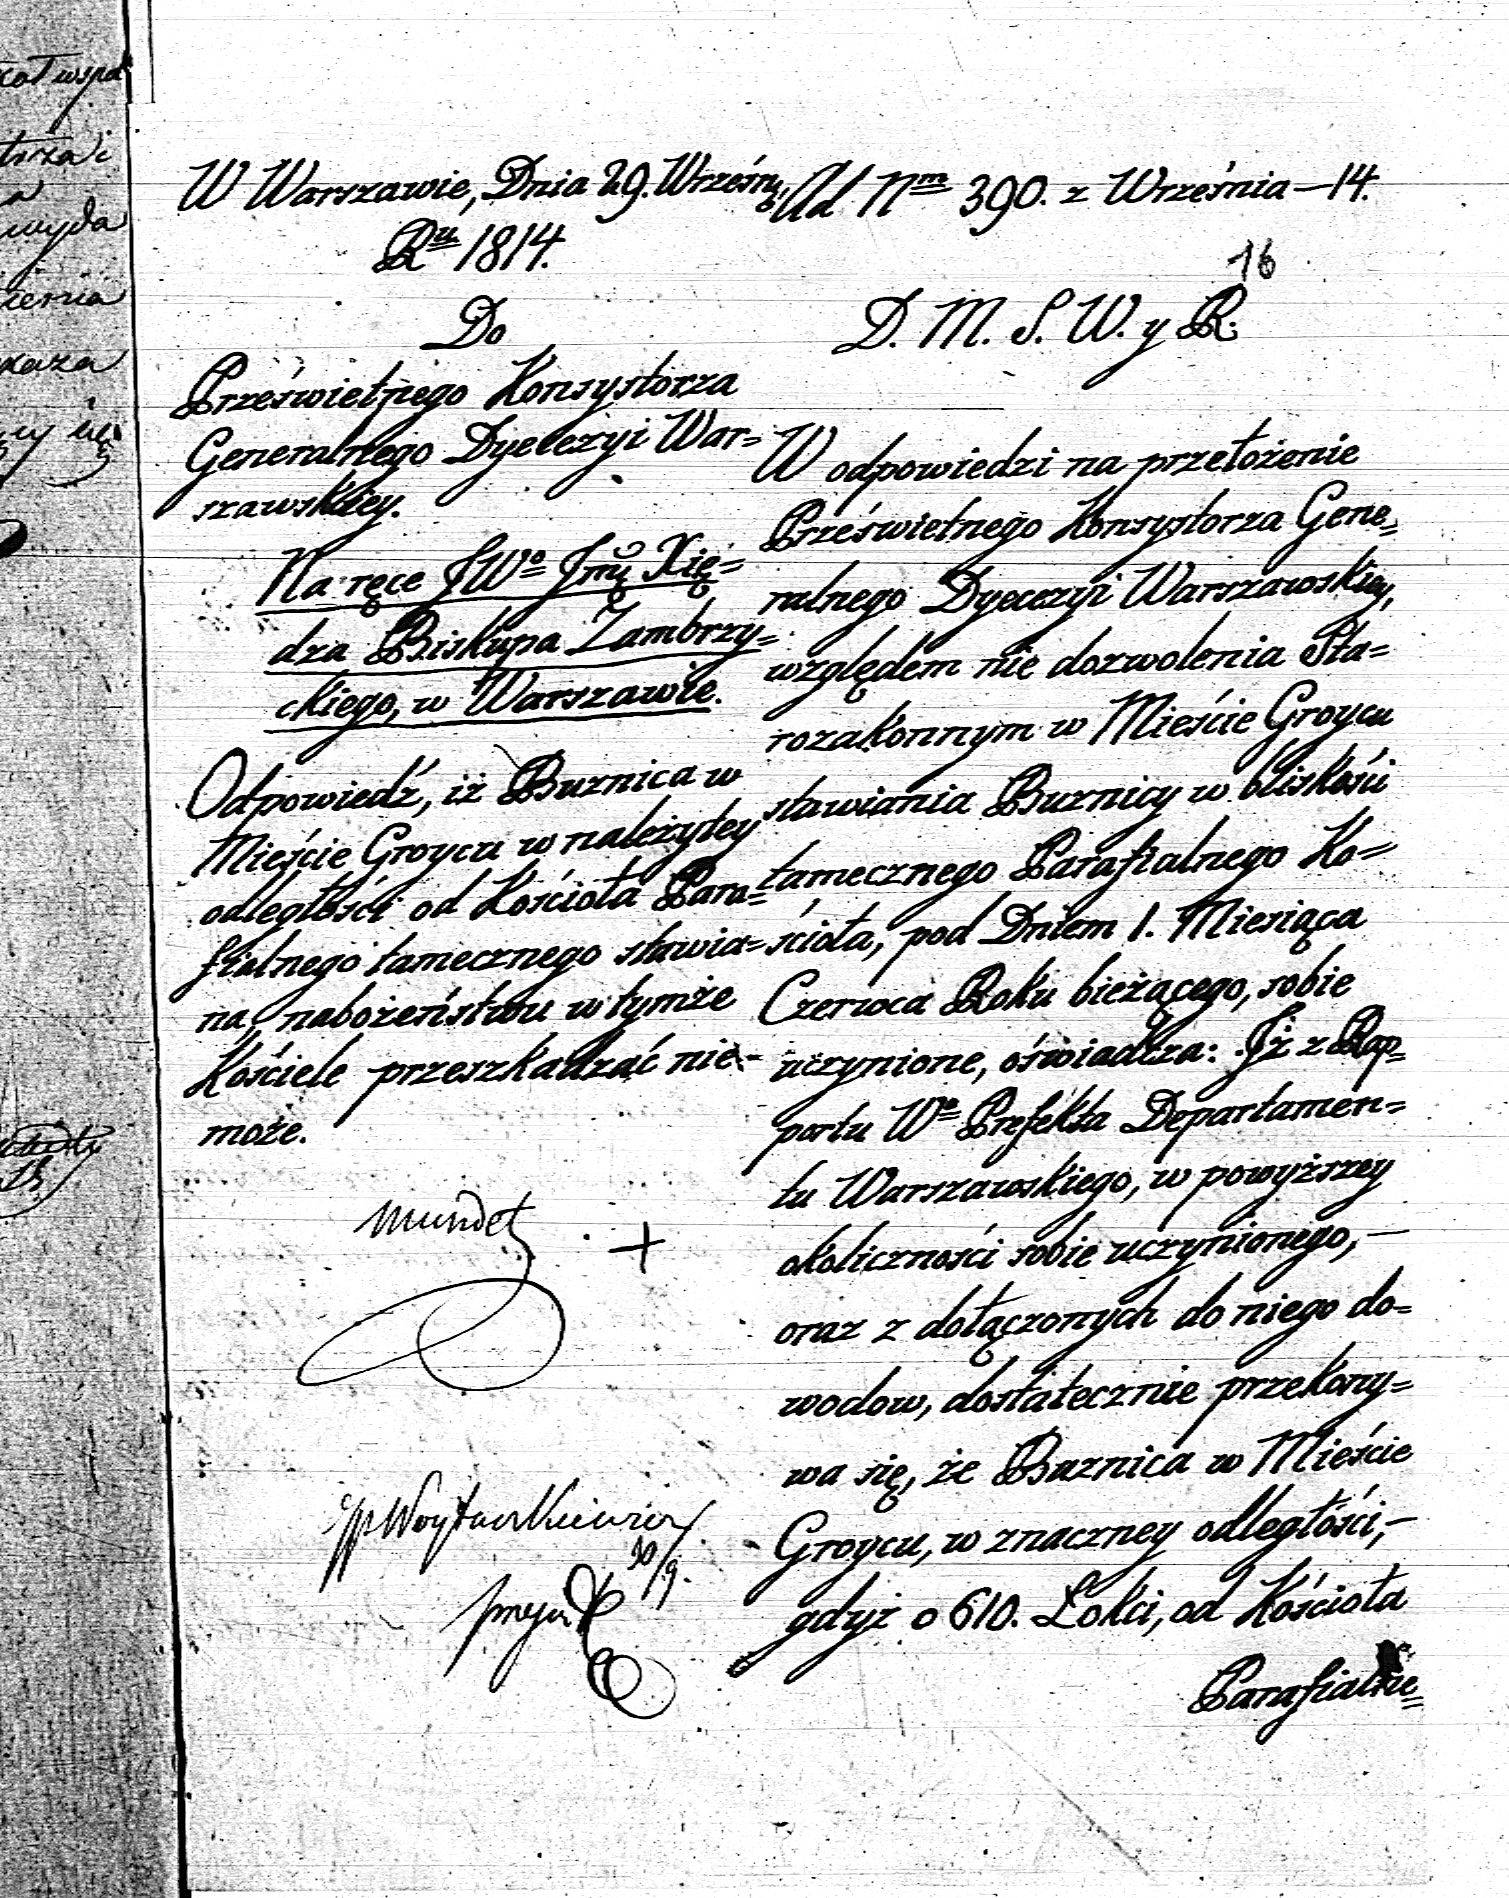 W Warszawie, Dnia 29. Wrześn.
Ru 1814.
Do
Prześwietnego Konsystorza
Generalnego Dyecezyi War=
szawskiey.
Na ręce JWo Jmę Xię=
dza Biskupa Zambrzy=
ckiego, w Warszawie.
Odpowiedź, iż Buznica w
Mieście Groycu w należytey
odległości od Kościoła Para=
fialnego tamecznego stawia=
na, nabożeństwu w tymże
Kościele przeszkadzać nie=
może.
Mundet
30/9.
Ad Nm 390. z Września—14.
16
D. M. S. W. y R.
W odpowiedzi na przełożenie
Prześwietnego Konsystorza Gene=
ralnego Dyecezyi Warszawskiey,
względem nie dozwolenia Sta=
rozakonnym w Mieście Groycu
stawiania Buznicy w bliskości
tamecznego Parafialnego Ko=
ścioła, pod Dniem 1. Miesiąca
Czerwca Roku bieżącego, sobie
uczynione, oświadcza: Iż z Rap=
portu Wo Prefekta Departamen=
tu Warszawskiego, w powyższey
okoliczności sobie uczynionego, —
oraz z dołączonych do niego do=
wodow, dostatecznie przekony=
wa się, że Buznica w Mieście
Groycu, w znaczney odległości, —
gdyż o 610. Łokci, od Kościoła
Parafialne=